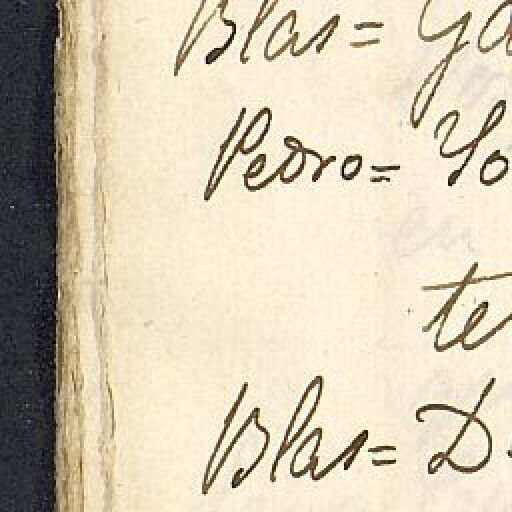 Blas= Ya
Pedro= Yo
te
Blas= D